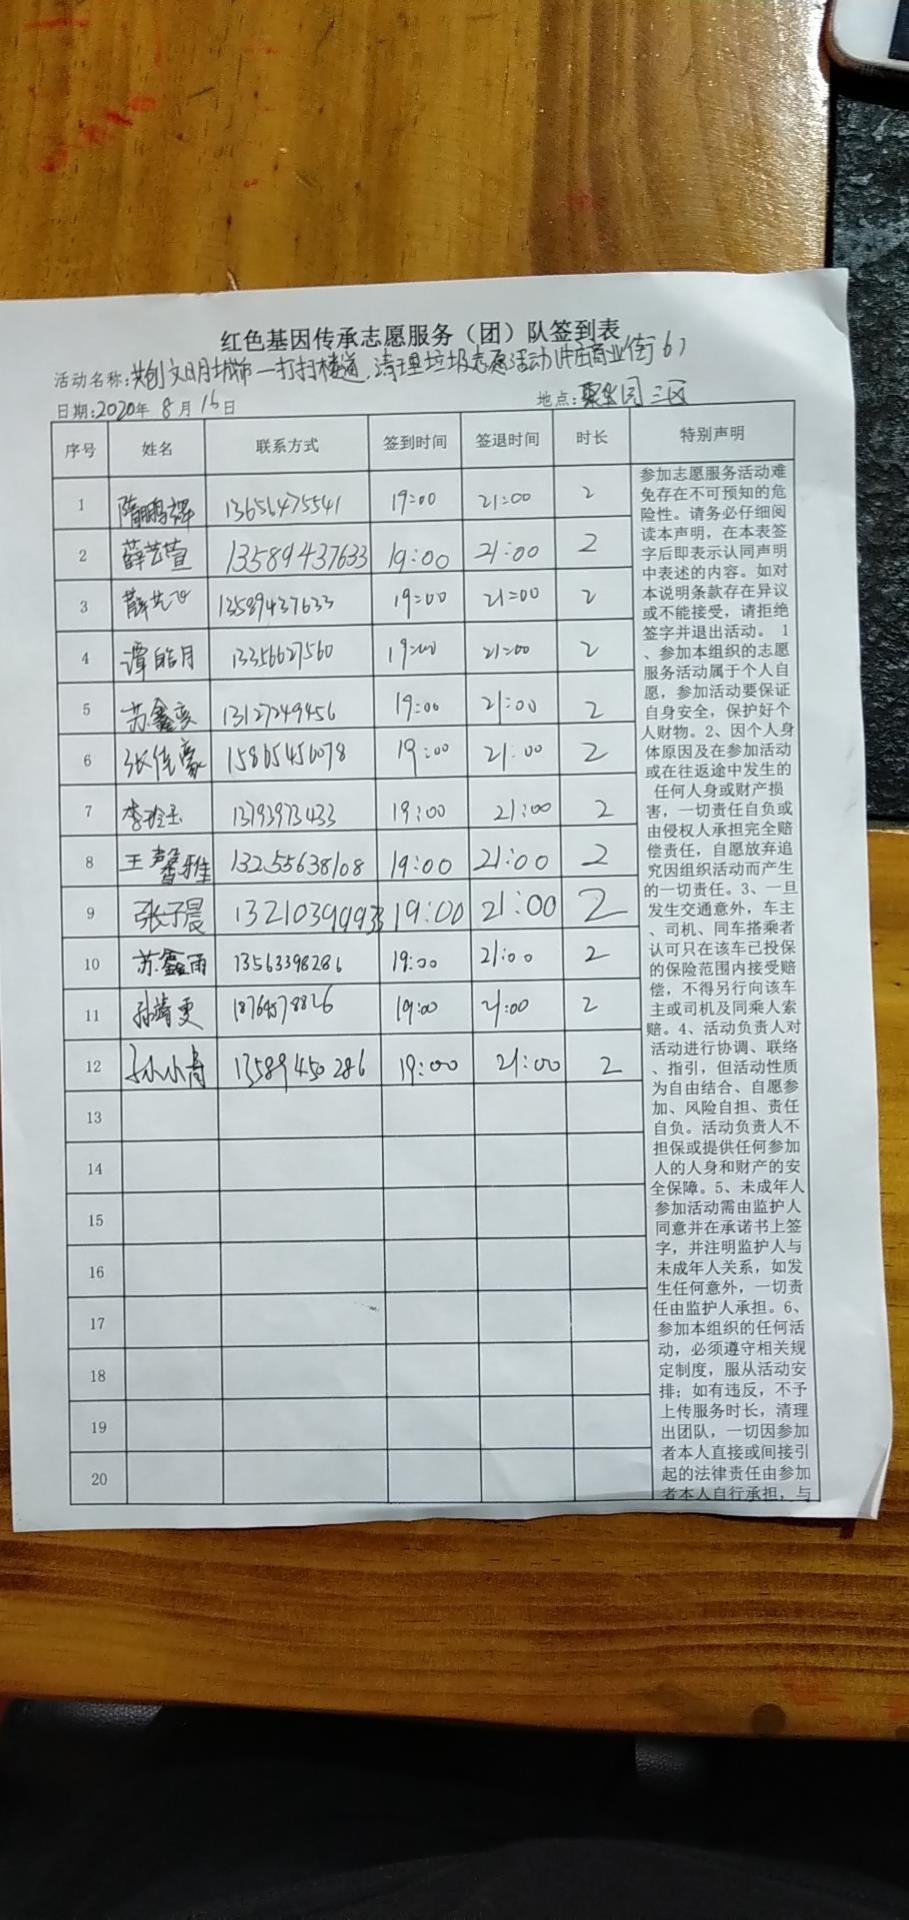 红色基因传承志愿服务（团）队签到表
活动名称:共创文明城市—打扫楼道、清理垃圾志愿活动(洪庄商业街6)
日期:2020年 8月16日 地点:聚华园三区
序号 姓名 联系方式 签到时间 签退时间 时长 特别声明
1 隋鹏辉 13656475541 19:00 21:00 2
2 薛艺萱 13589437633 19:00 21:00 2
3 薛艺飞 13589437633 19:00 21:00 2
4 谭皓月 13356627560 19:00 21:00 2
5 苏鑫奕 13127249456 19:00 21:00 2
6 张佳豪 15865456078 19:00 21:00 2
7 李玲玉 13793973433 19:00 21:00 2
8 王馨雅 13255638108 19:00 21:00 2
9 张子晨 13210399933 19:00 21:00 2
10 苏鑫雨 13563398286 19:00 21:00 2
11 孙靖雯 18769578826 19:00 21:00 2
12 孙小青 13589450286 19:00 21:00 2
13
14
15
16
17
18
19
20
参加志愿服务活动难
免存在不可预知的危
险性。请务必仔细阅
读本声明，在本表签
字后即表示认同声明
中表述的内容。如对
本说明条款存在异议
或不能接受，请拒绝
签字并退出活动。 1
、参加本组织的志愿
服务活动属于个人自
愿，参加活动要保证
自身安全，保护好个
人财物。2、因个人身
体原因及在参加活动
或在往返途中发生的
任何人身或财产损
害，一切责任自负或
由侵权人承担完全赔
偿责任，自愿放弃追
究因组织活动而产生
的一切责任。3、一旦
发生交通意外，车主
、司机、同车搭乘者
认可只在该车已投保
的保险范围内接受赔
偿，不得另行向该车
主或司机及同乘人索
赔。4、活动负责人对
活动进行协调、联络
、指引，但活动性质
为自由结合、自愿参
加、风险自担、责任
自负。活动负责人不
担保或提供任何参加
人的人身和财产的安
全保障。5、未成年人
参加活动需由监护人
同意并在承诺书上签
字，并注明监护人与
未成年人关系，如发
生任何意外，一切责
任由监护人承担。6、
参加本组织的任何活
动，必须遵守相关规
定制度，服从活动安
排；如有违反，不予
上传服务时长，清理
出团队，一切因参加
者本人直接或间接引
起的法律责任由参加
者本人自行承担，与